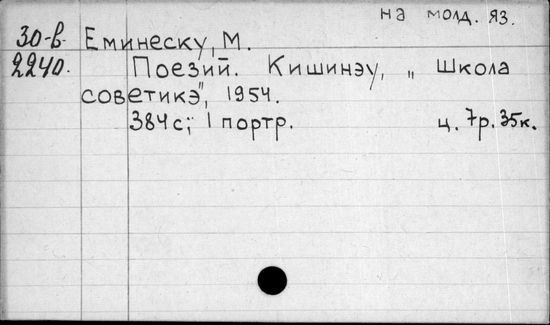 на молд. яз.
30-в Еминеску, М.
2240. Поезий. Кишинэу, „ Школа
советикэ", 1954.
384с; 1 портр. ц. 7р. 35к.